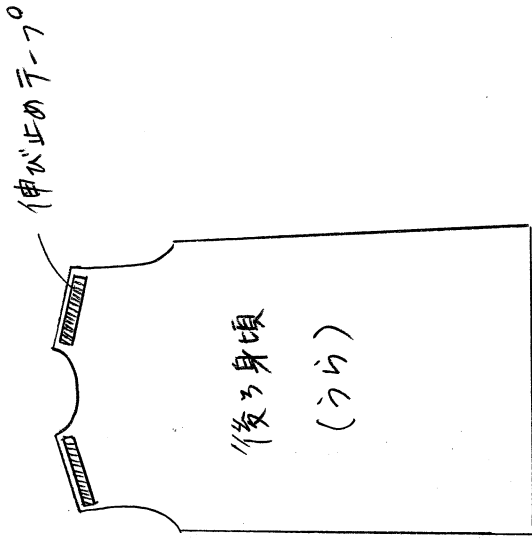 伸び止めテープ
後ろ身頃
(うら)